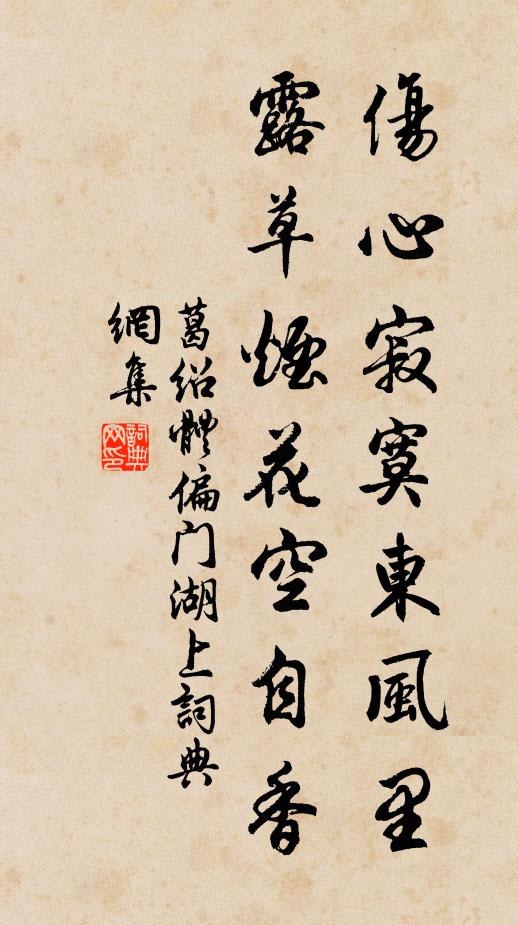 傷心寂寞東風里
露草煙花空自香
葛绍體偏门湖上詞典
網集
詞典网印